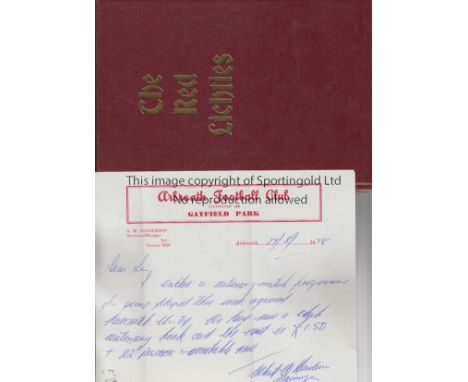 The
Red
Lichties
This image copyright of Sportingold Ltd
No reproduction allowed
Arbroath Football Club
GAYFIELD PARK
A. M. HENDERSON
Secretary-Manager
Arbroath, 197
Dear Sir,
I enclose a centenary match programme
for game played this week against
Newcastle United, We have now a club
centenary book and the cost is £1.50
+ 22 postage available now